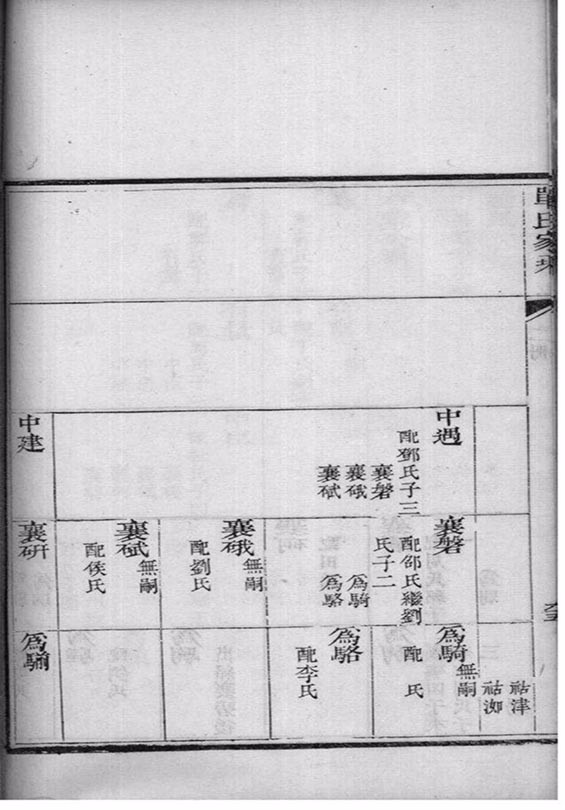 單氏家乘
祜津
祜洳
中遇
配鄧氏子三
襄磐
襄硪
襄碔
中建
襄磐
配邵氏繼劉
氏子二
為騎
為駱
襄硪
無嗣
配劉氏
襄碔
無嗣
配侯氏
襄研
為騎
無嗣
配 氏
為駱
配李氏